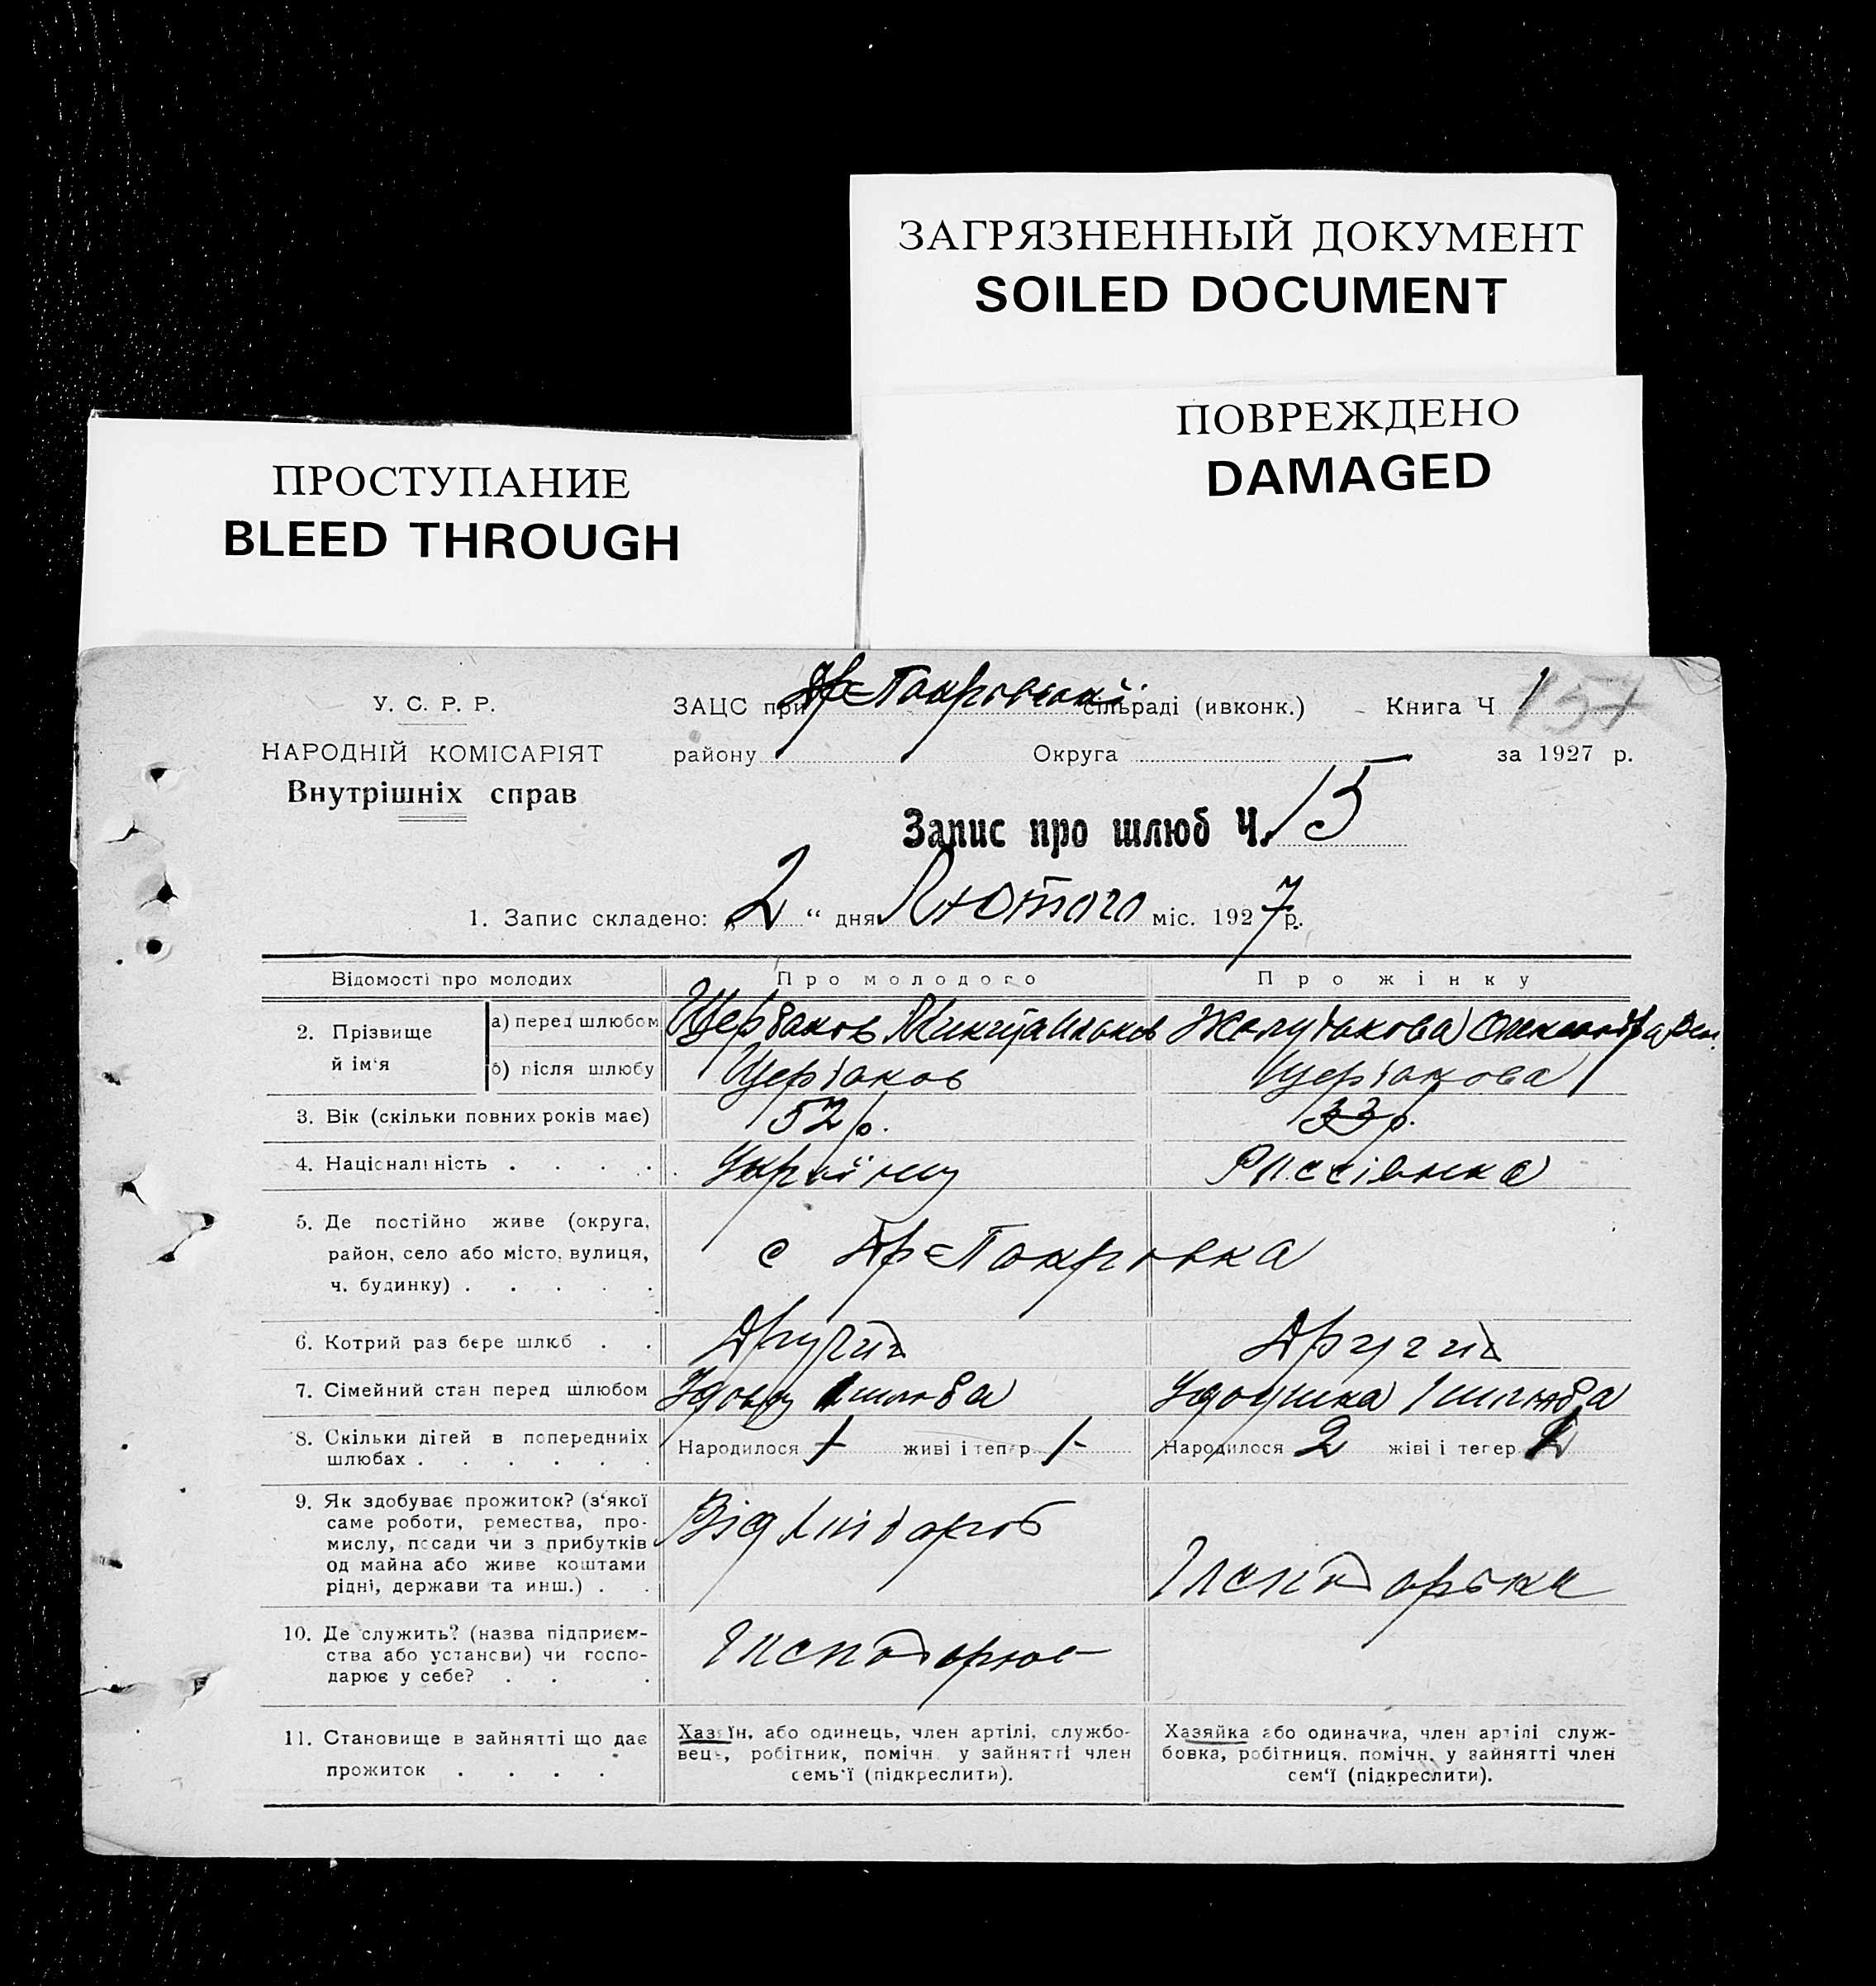 ЗАГРЯЗНЕННЫЙ ДОКУМЕНТ
SOILED DOCUMENT
ПОВРЕЖДЕНО
DAMAGED
ПРОСТУПАНИЕ
BLEED THROUGH
У. С. Р. Р.
НАРОДНІЙ КОМІСАРІЯТ
Внутрішніх справ
ЗАЦС при Др-Покровській сільраді (ивконк.) Книга Ч 1 157
району Округа за 1927 р.
Запис про шлюб Ч. 15
1. Запис складено: „2“ дня Лютого міс. 1927 р.
Відомості про молодих Про молодого Про жінку
2. Прізвище й ім'я
а) перед шлюбом Щербаков Микита Ільков Желудькова Олександра
б) після шлюбу Щербаков Щербакова
3. Вік (скільки повних років має) 52 р. 33 р.
4. Національність . . . . Украінец Россіянка
5. Де постійно живе (округа,
район, село або місто, вулиця,
ч. будинку) . . . . .
с Др-Покровка
6. Котрий раз бере шлюб . . Другий Другий
7. Сімейний стан перед шлюбом Удовец 1 шлюба Удовишка 1 шлюба
8. Скільки дітей в попередніх
шлюбах . . . . . .
Народилося 1 живі і тепер 1 Народилося 2 жіві і тепер 2
9. Як здобуває прожиток? (з'якої
саме роботи, ремества, про-
мислу, посади чи з прибутків
од майна або живе коштами
рідні, держави та инш.) . .
Від хлібороб
Господарька
10. Де служить? (назва підприєм-
ства або установи) чи госпо-
дарює у себе? . . .
Господарює
11. Становище в зайнятті що дає
прожиток . . . .
Хазяїн, або одинець, член артілі, службо-
вець, робітник, помічн. у зайнятті член
семь'ї (підкреслити).
Хазяйка або одиначка, член артілі служ-
бовка, робітниця, помічн. у зайнятті член
сем'ї (підкреслити).